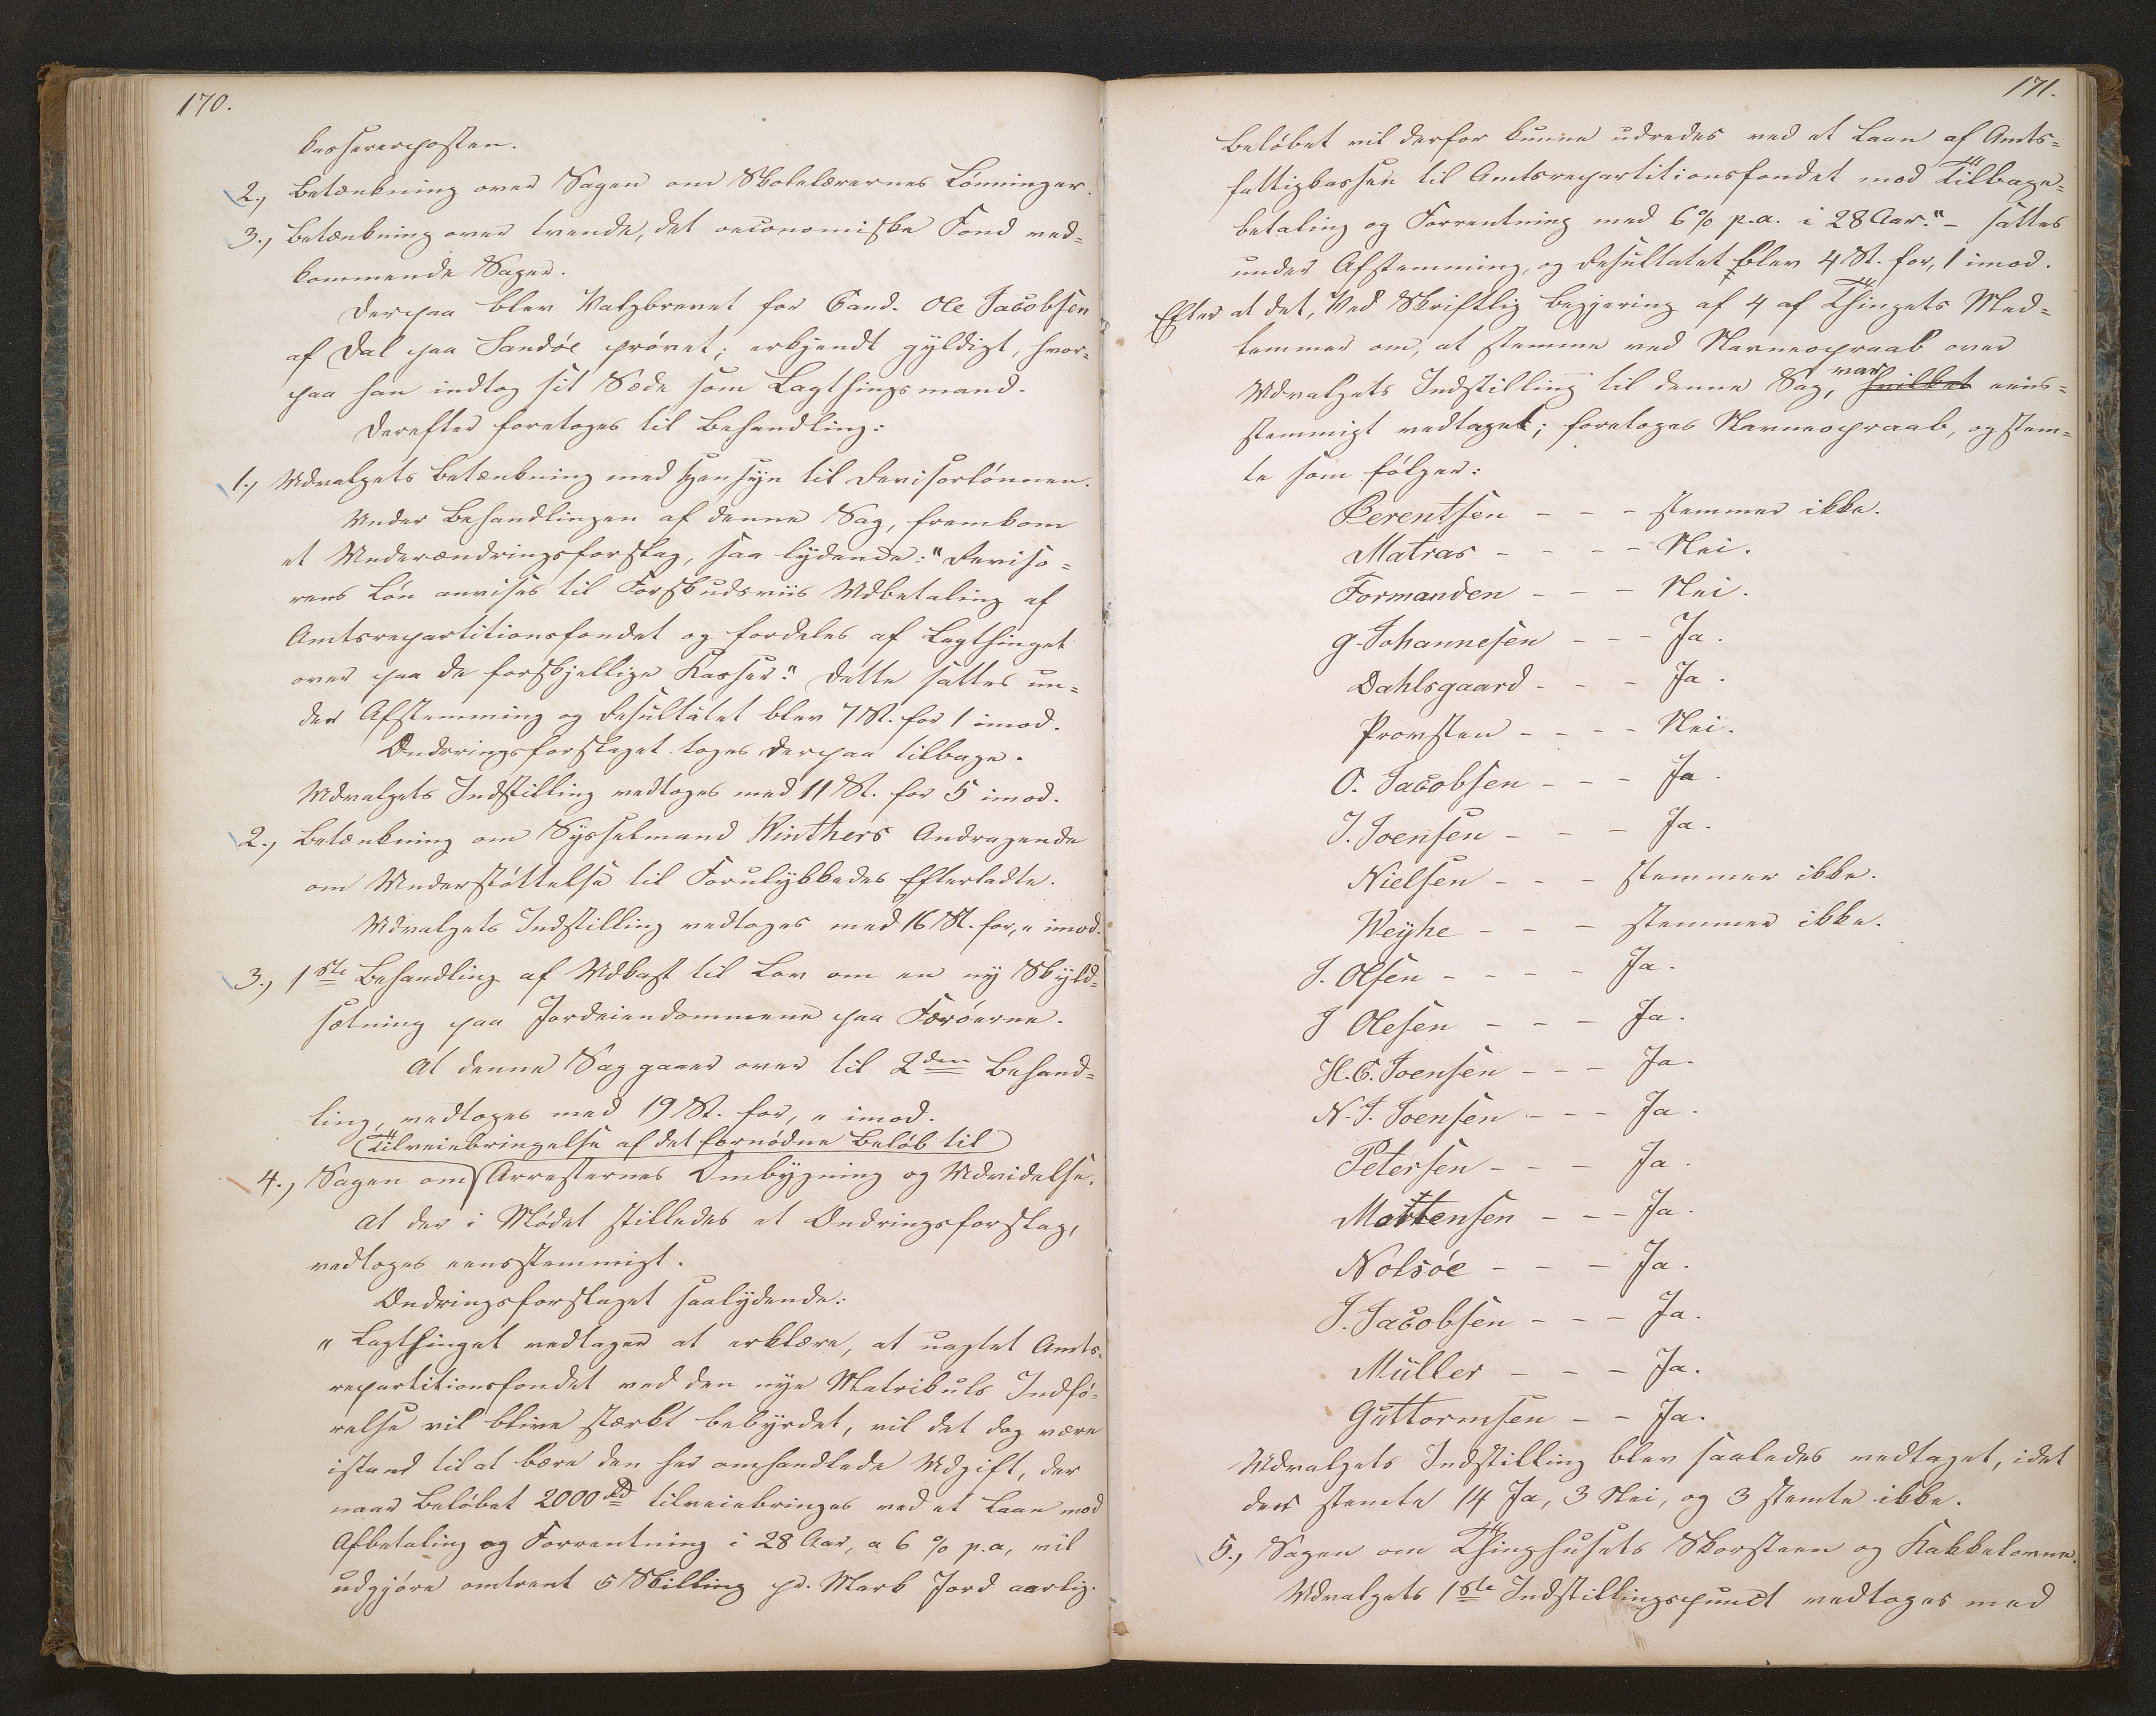 170.
kassererposten.
2., Betænkning over Sagen om Skolelærernes Lønninger.
3., Betænkning over tvende, det oeconomiske Fond ved-
kommende Sager.
Derpaa blev Valgbrevet for Cand. Ole Jacobsen
af Dal paa Sandøe prøvet; erkjendt gyldigt, hvor-
paa han indtog sit Sæde som Lagthingsmand.
Derefter foretoges til Behandling:
1., Udvalgets Betænkning med Hensyn til Revisorlønnen.
Under Behandlingen af denne Sag, fremkom
et Underændringsforslag, saa lydende: "Reviso-
rens Løn anvises til Forskudsviis Udbetaling af
Amtsrepartitionsfondet og fordeles af Lagthinget
over paa de forskjellige Kasser." Dette sattes un-
der Afstemning og Resultatet blev 7 St. for 1 imod.
Ændringsforslaget toges derpaa tilbage.
Udvalgets Indstilling vedtoges med 11 St. for 5 imod.
2., Betænkning om Sysselmand Winthers Andragende
om Understøttelse til Forulykkedes Efterladte.
Udvalgets Indstilling vedtoges med 16 St. for, " imod.
3., 1ste Behandling af Udkast til Lov om en ny Skyld-
sætning paa Jordeiendommene paa Færøerne.
At denne Sag gaaer over til 2den Behand-
ling, vedtoges med 19 St. for, " imod.
Tilveiebringelse af det fornødne Beløb til
4., Sagen om Arresternes Ombygning og Udvidelse.
At der i Mødet stilledes et Ændringsforslag,
vedtoges eensstemmigt.
Ændringsforslaget saalydende:
" Lagthinget vedtager at erklære, at uagtet Amts-
repartitionsfondet ved den nye Matrikuls Indfø-
relse vil blive stærkt bebyrdet, vil det dog være
istand til at bære den her omhandlede Udgift, der
naar Beløbet 2000 Rd tilveiebringes ved et Laan mod
Afbetaling og Forrentning i 28 Aar, a 6 % p.a, vil
udgjøre omtrent 5 Skilling pr. Mark Jord aarlig.
171.
Beløbet vil derfor kunne udredes ved et Laan af Amts-
fattigkassen til Amtsrepartitionsfondet mod Tilbage-
betaling og Forrentning med 6% p.a. i 28 Aar." – sattes
under Afstemning, og Resultatet blev 4 St. for, 1 imod.
Efter at det, Ved Skriftlig Begjæring af 4 af Thingets Med-
lemmer om, at stemme ved Navneopraab over
Udvalgets Indstilling til denne Sag, var hvilket eens-
stemmigt vedtaget; foretoges Navneopraab, og stem-
te som følger:
Berentsen - - - stemmer ikke.
Matras - - - - Nei.
Formanden - - - Nei.
g. Johannesen - - - Ja.
Dahlsgaard - - - Ja.
Provsten - - - - Nei.
O. Jacobsen - - - Ja.
J. Joensen - - - Ja.
Nielsen - - - stemmer ikke.
Weyhe - - - stemmer ikke.
J. Olsen - - - - Ja.
J Olesen - - - Ja.
H. C. Joensen - - - Ja.
N. J. Joensen - - - Ja.
Petersen - - - Ja.
Mortensen - - - Ja.
Nolsøe - - - Ja.
J. Jacobsen - - - Ja.
Müller - - - Ja.
Guttormsen - - Ja.
Udvalgets Indstilling blev saaledes vedtaget, idet
der stemte 14 Ja, 3 Nei, og 3 stemte ikke.
5., Sagen om Thinghusets Skorsteen og Kakkelovne.
Udvalgets 1ste Indstillingspunct vedtoges med